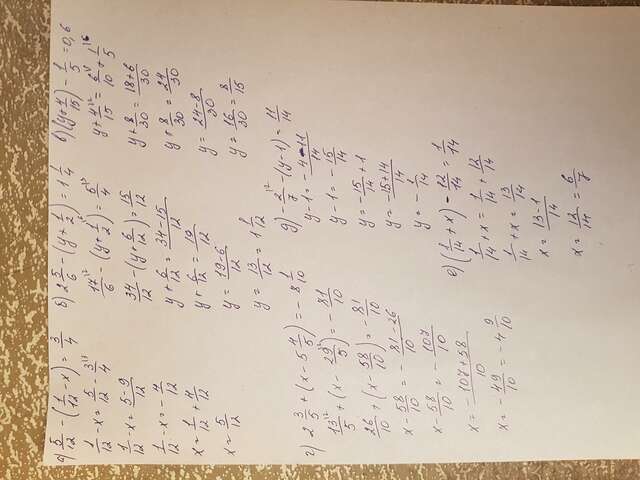 а) 5/12 - (1/12 - x) = 3/4
1/12 - x = 5/12 - 3/4
1/12 - x = 5-9/12
1/12 - x = - 4/12
x = 1/12 + 4/12
x = 5/12
б) 2 5/6 - (y + 1/2) = 1 1/4
17/6 - (y + 1/2) = 5/4
34/12 - (y + 6/12) = 15/12
y + 6/12 = 34-15/12
y + 6/12 = 19/12
y = 19-6/12
y = 13/12 = 1 1/12
в) (y + 4/15) - 1/5 = 0,6
y + 4/15 = 6/10 + 1/5
y + 8/30 = 18+6/30
y + 8/30 = 24/30
y = 24-8/30
y = 16/30 = 8/15
г) 2 3/5 + (x - 5 4/5) = - 8 1/10
13/5 + (x - 29/5) = - 81/10
26/10 + (x - 58/10) = - 81/10
x - 58/10 = - 81-26/10
x - 58/10 = - 107/10
x = - 107+58/10
x = - 49/10 = - 4 9/10
д) - 2/7 - (y - 1) = 11/14
y - 1 = - 4-11/14
y - 1 = - 15/14
y = - 15/14 + 1
y = - 15+14/14
y = - 1/14
е) (1/14 + x) - 12/14 = 1/14
1/14 + x = 1/14 + 12/14
1/14 + x = 13/14
x = 13-1/14
x = 12/14 = 6/7